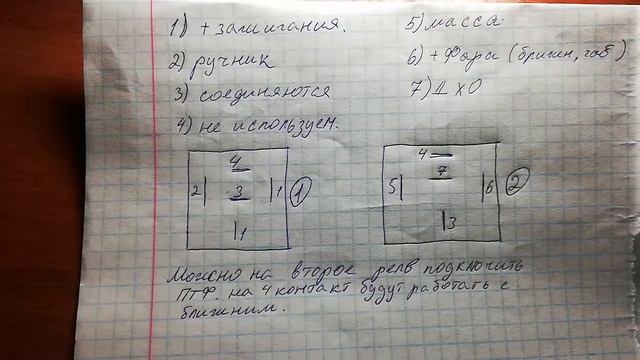 1) + зажигания.
2) ручник
3) соединяются
4) не используем.
5) масса
6) + Фара (ближн, габ)
7) ДХО
4
2 3 1 ①
1
4
7
5 6 ②
3
Можно на второе реле подключить
ПТФ. на 4 контакт будут работать с
ближним.